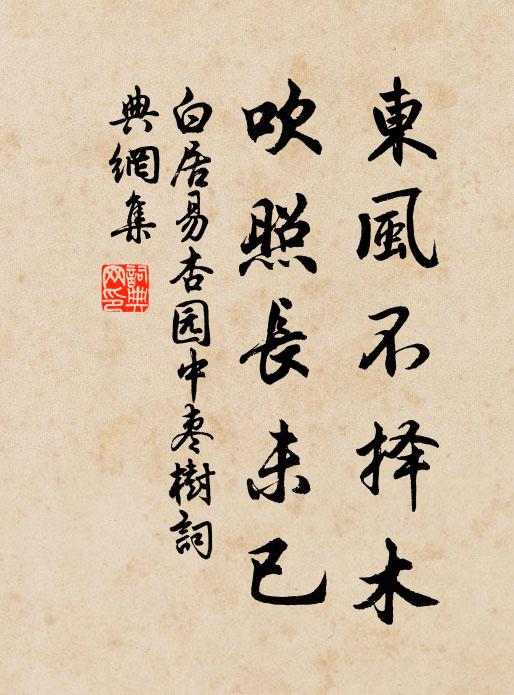 東風不择木
吹照長未已
白居易杏园中枣樹詞
典網集
詞典网印